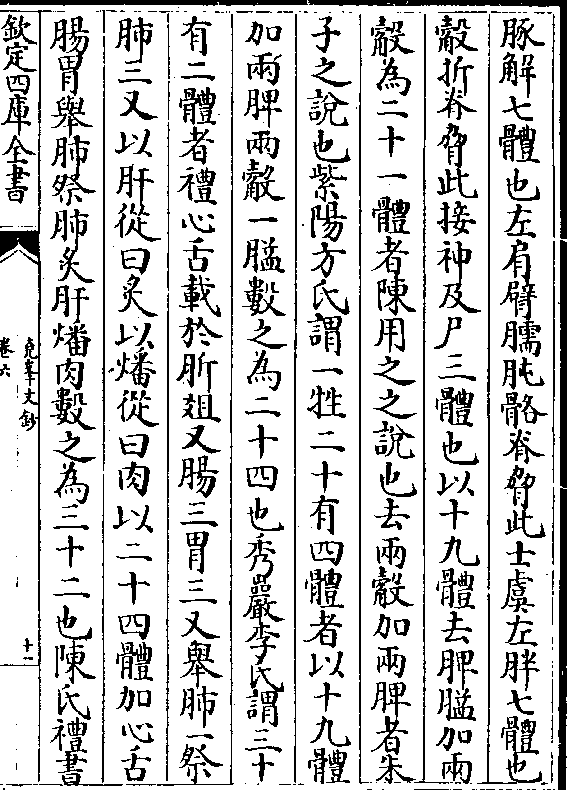 豚解七體也左肩臂臑肫骼脊脅此士虞左胖七體也
觳折脊脅此接神及尸三體也以十九體去脾膉加兩
觳為二十一體者陳用之之說也去兩觳加兩脾者朱
子之說也紫陽方氏謂一牲二十有四體者以十九體
加兩脾兩觳一膉數之為二十四也秀巖李氏謂三十
有二體者禮心舌載於肵俎又腸三胃三又舉肺一祭
肺三又以肝從曰炙以燔從曰肉以二十四體加心舌
腸胃舉肺祭肺炙肝燔肉數之為三十二也陳氏禮書
欽定四庫全書
堯峯文鈔
卷六
十一